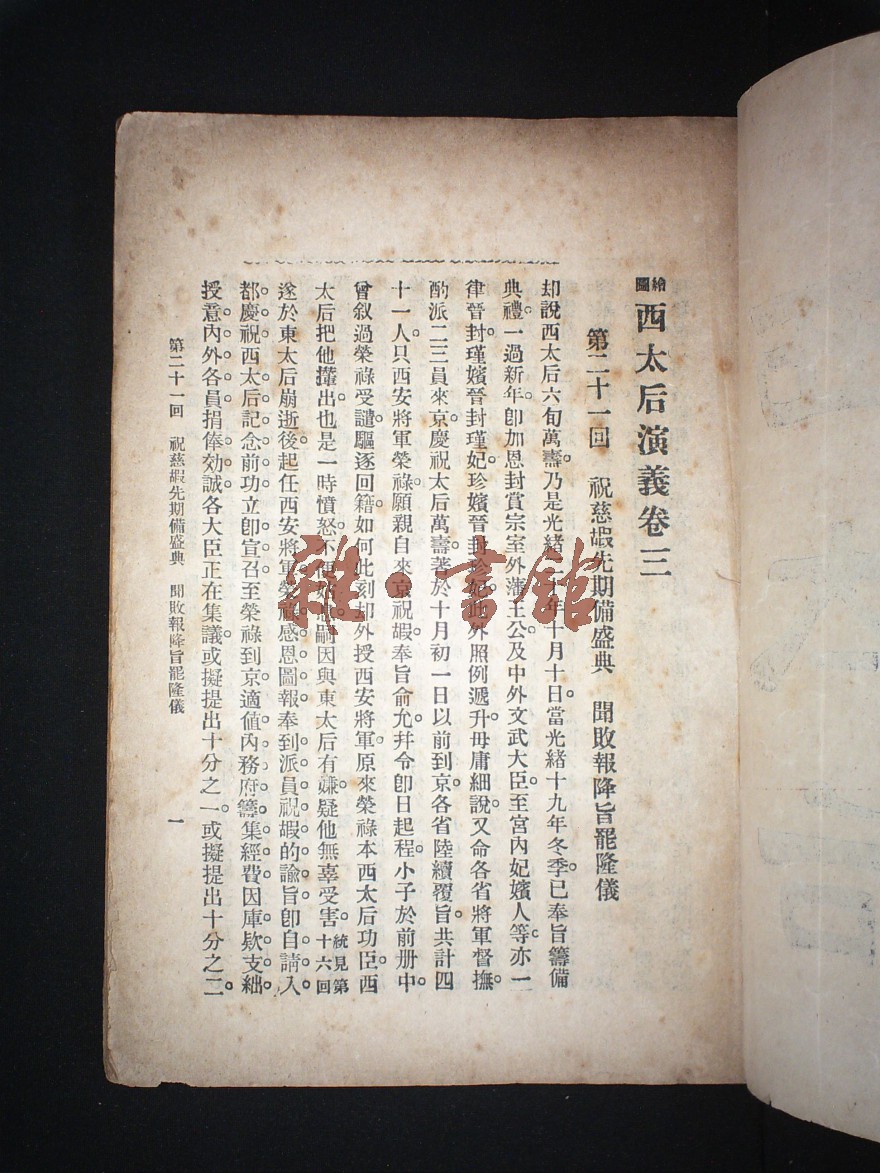 繪圖西太后演義卷三
第二十一回　祝慈嘏先期備盛典　聞敗報降旨罷隆儀
却說西太后六旬萬壽。乃是光緒二十年十月十日。當光緒十九年冬季。已奉旨籌備
典禮。一過新年。卽加恩封賞宗室外藩王公。及中外文武大臣。至宮內妃嬪人等。亦一
律晉封。瑾嬪晉封瑾妃。珍嬪晉封珍妃。此外照例遞升。毋庸細說。又命各省將軍督撫。
酌派二三員來京。慶祝太后萬壽。著於十月初一日以前到京。各省陸續覆旨。共計四
十一人。只西安將軍榮祿。願親自來京祝嘏。奉旨俞允。幷令卽日起程。小子於前册中。
曾叙過榮祿受譴。驅逐回籍。如何此刻却外授西安將軍。原來榮祿本西太后功臣。西
太后把他攆出。也是一時憤怒。不便 嗣因與東太后有嫌。疑他無辜受害。統見第十六回
遂於東太后崩逝後。起任西安將軍。榮祿感恩圖報。奉到派員祝嘏的諭旨。卽自請入
都。慶祝西太后。記念前功。立卽宣召。至榮祿到京。適値內務府籌集經費。因庫欵支絀。
授意內外各員。捐俸効誠。各大臣正在集議。或擬提出十分之一。或擬提出十分之二。
第二十一回　祝慈嘏先期備盛典　聞敗報降旨罷隆儀　一
雜·書館